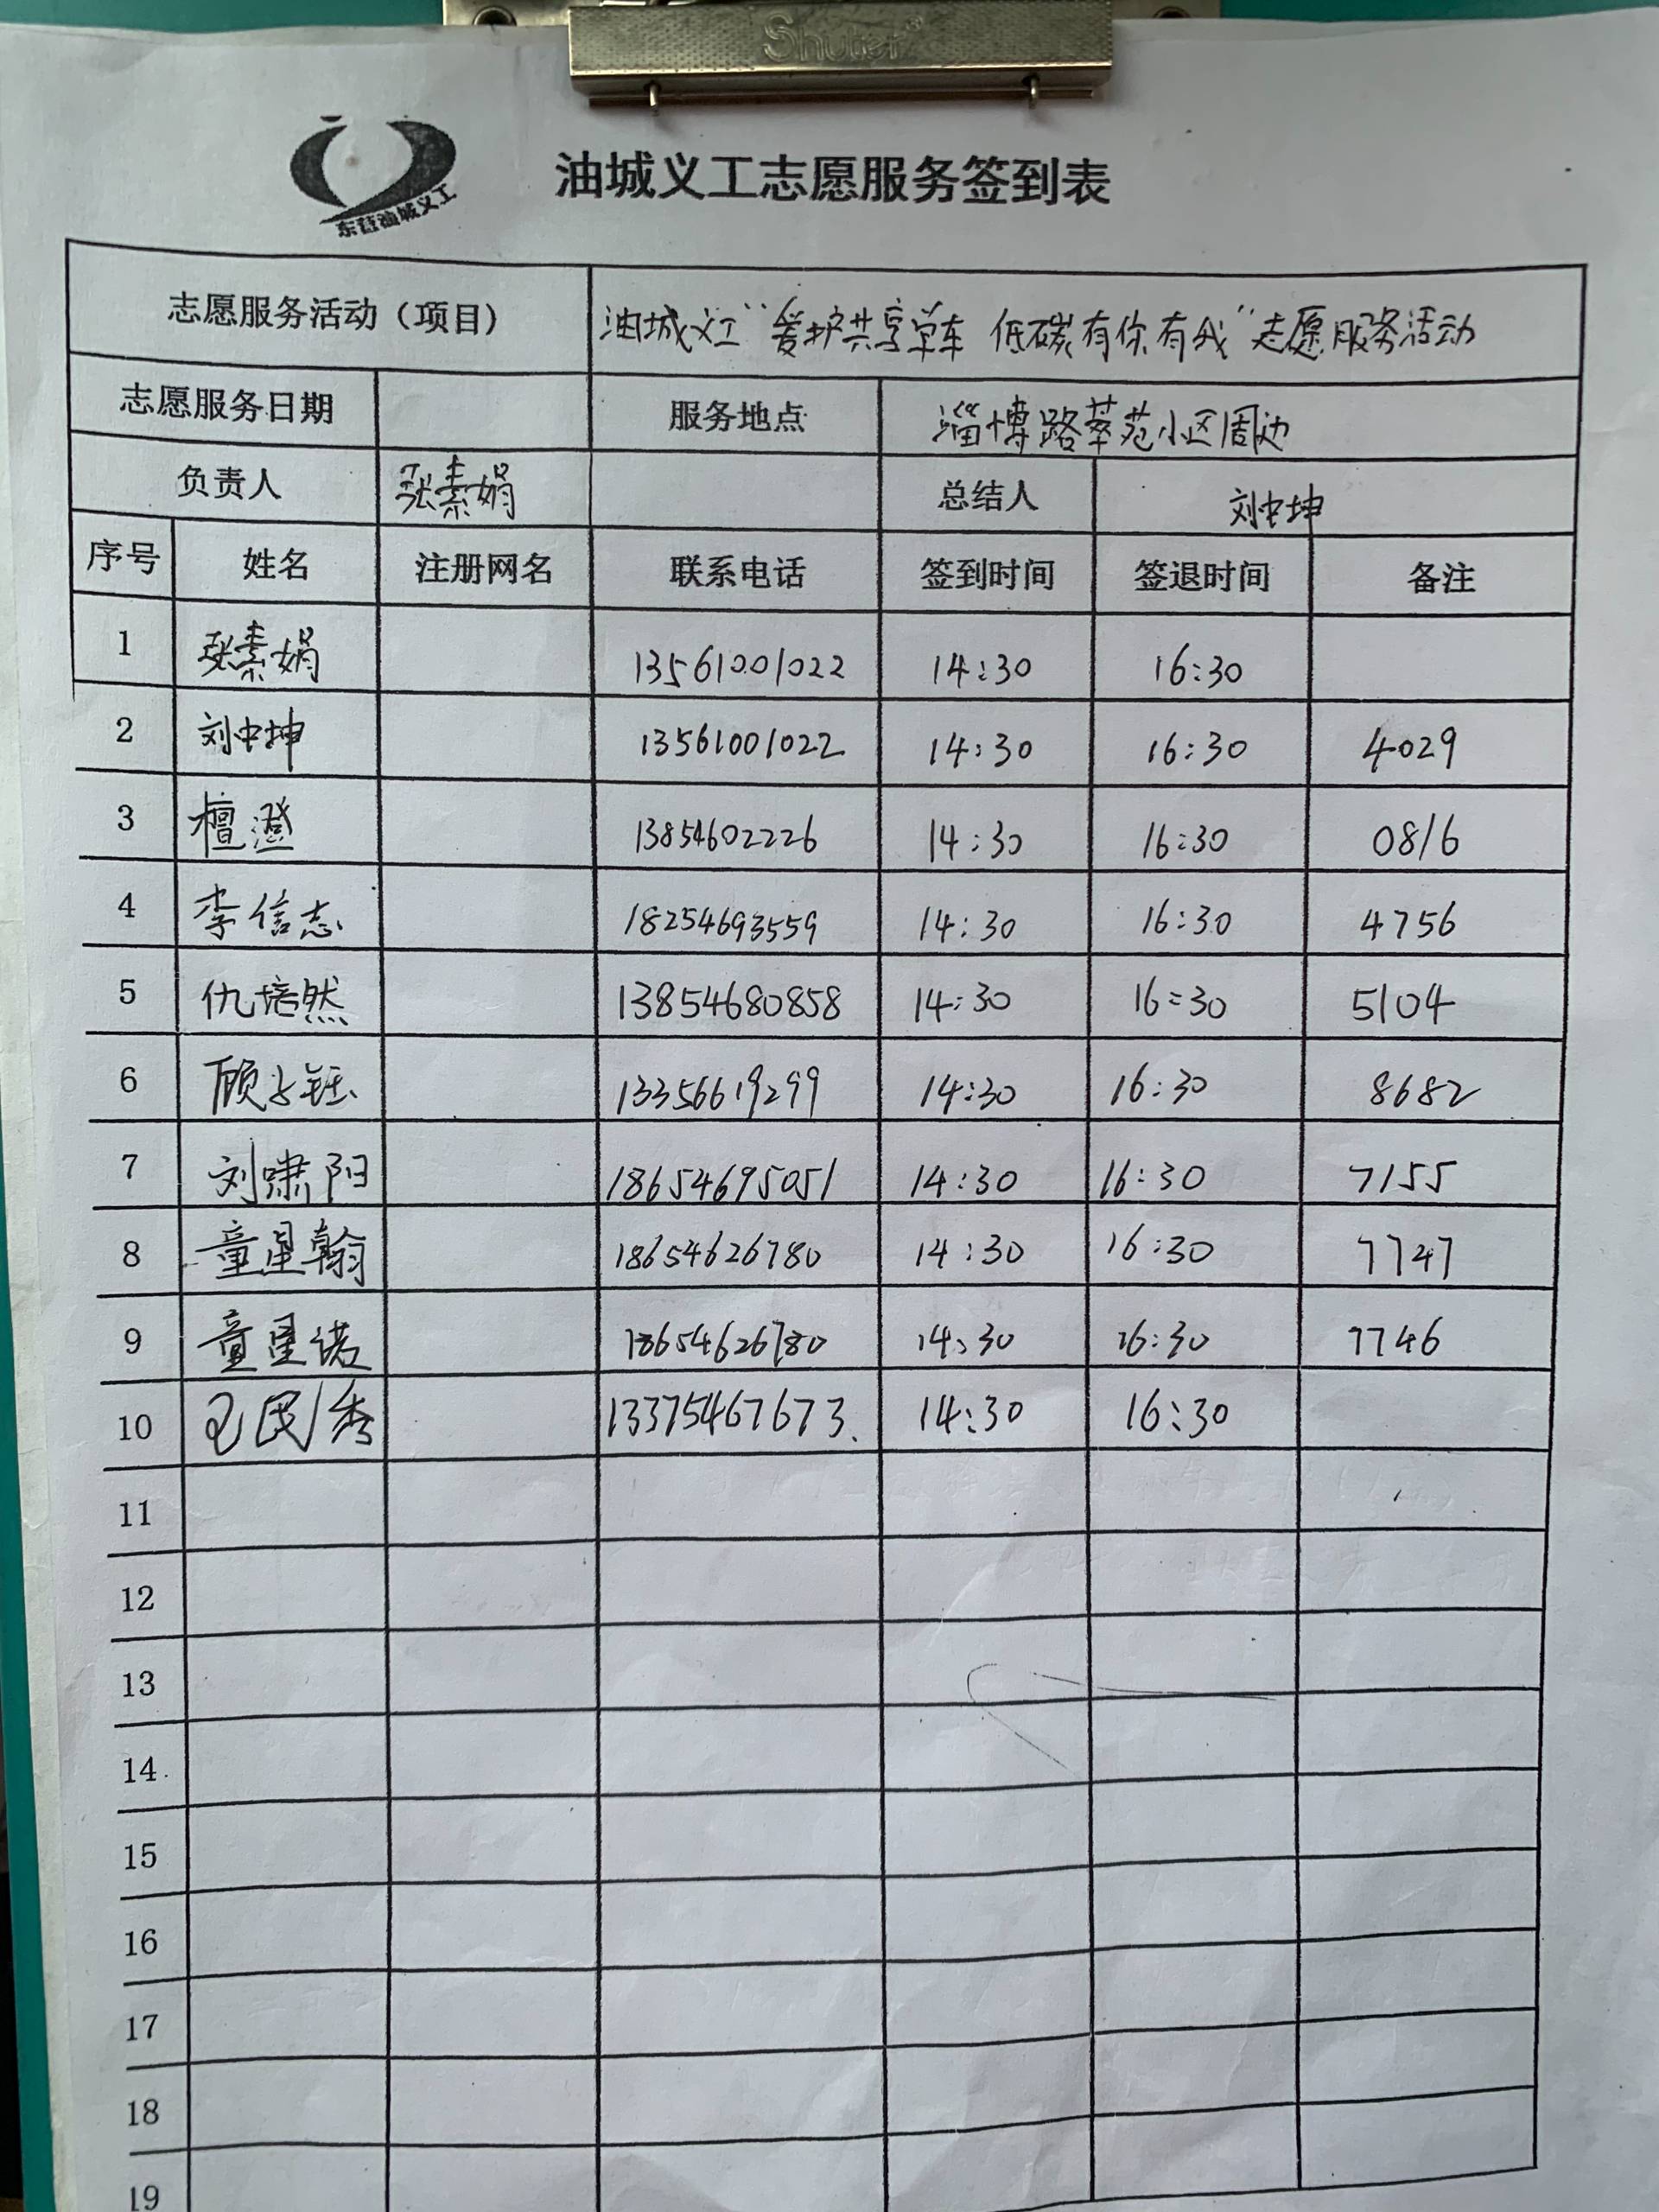 Shuter
东营油城义工
油城义工志愿服务签到表
志愿服务活动（项目） 油城义工“爱护共享单车 低碳有你有我”志愿服务活动
志愿服务日期 服务地点 淄博路莘苑小区周边
负责人 张素娟 总结人 刘中坤
序号 姓名 注册网名 联系电话 签到时间 签退时间 备注
1 张素娟 13561001022 14:30 16:30
2 刘中坤 13561001022 14:30 16:30 4029
3 檀澄 13854602226 14:30 16:30 0816
4 李信志 18254693559 14:30 16:30 4756
5 仇培然 13854680858 14:30 16:30 5104
6 顾子钰 13356619299 14:30 16:30 8682
7 刘啸阳 18654695051 14:30 16:30 7155
8 童星翰 18654626780 14:30 16:30 7747
9 童星诺 18654626780 14:30 16:30 7746
10 13375467673 14:30 16:30
11
12
13
14
15
16
17
18
19